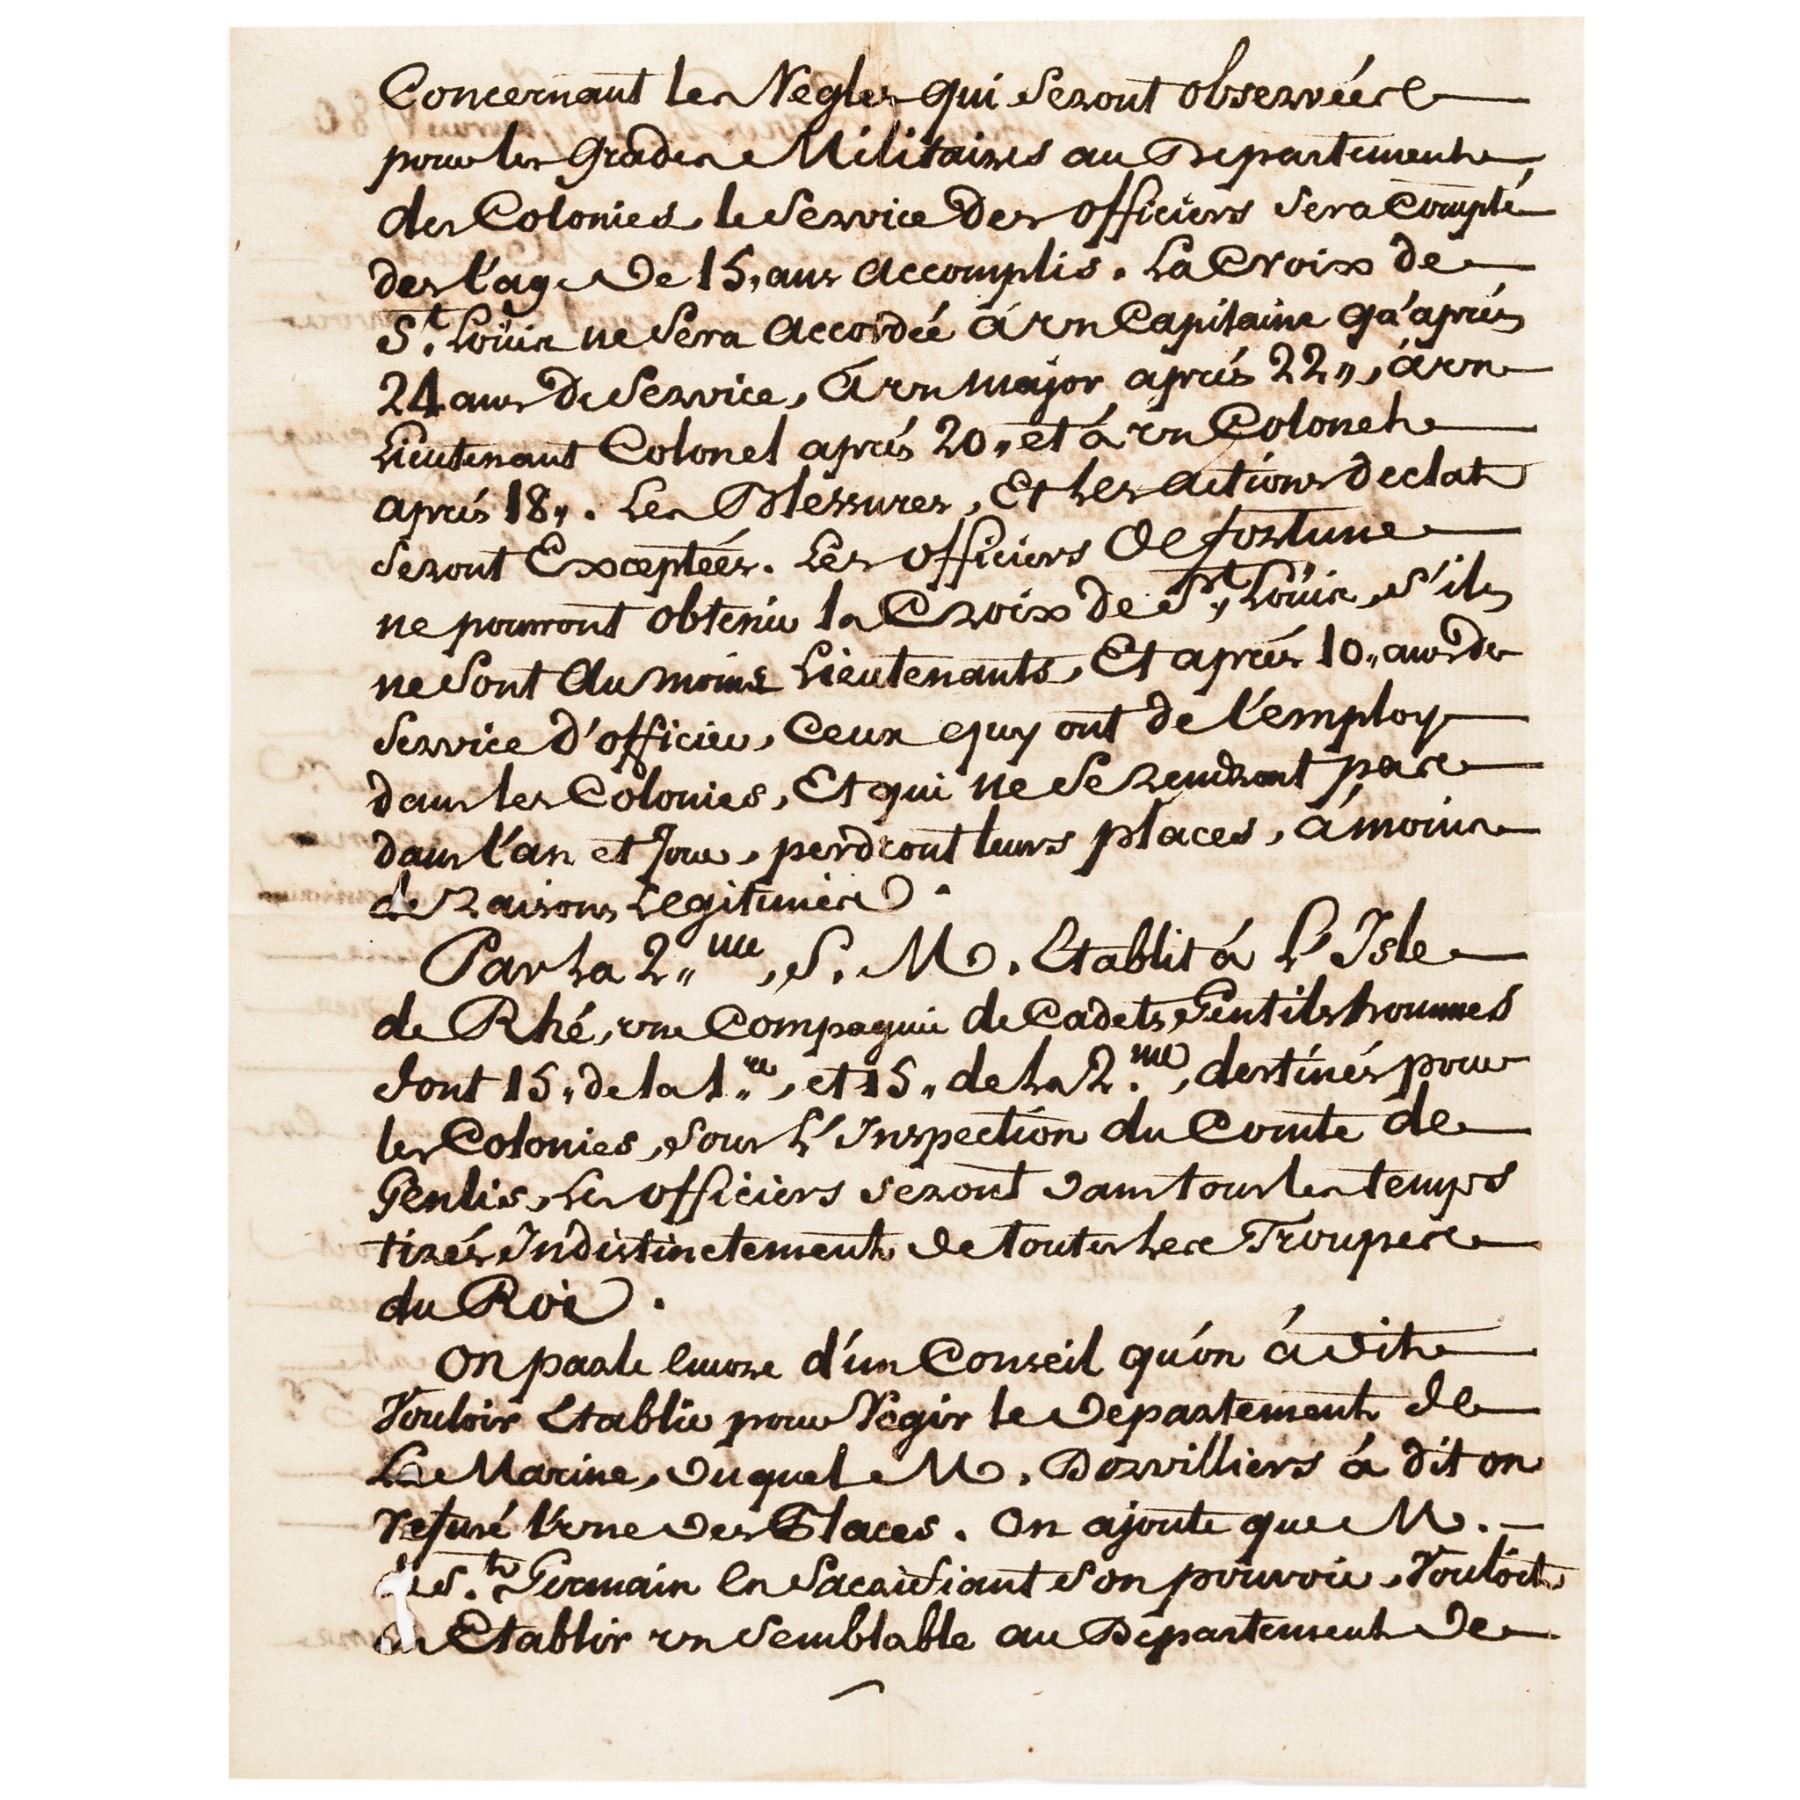 Concernant les Regles qui seront observées
pour les Grades Militaires au Departement
des Colonies, le service des officiers sera compté
des l'age de 15, ans accomplis. La Croix de
St. Loüis ne sera accordée á un Capitaine qu'aprés
24 ans de service, á un major aprés 22,, á un
Lieutenant Colonel aprés 20,, et á un Colonel
aprés 18,,. Les Blessures, Et les actions declat
seront Exceptées. Les officiers de fortune
ne pourront obtenir la Croix de St, Loüis, s'ils
ne sont au moins Lieutenants, Et aprés 10,, ans de
service d'officier, ceux quy ont de l'employ
dans les Colonies, Et qui ne se rendront pas
dans l'an et Jour, perdront leurs places, á moins
de raisons Legitimes.
Par La 2,,me, S. M. Etablit á L'Isle
de Rhé, une Compagnie de Cadets Gentilshommes
dont 15,, de la 1,,re, et 15,, de La 2.me, destinés pour
les Colonies, sous L'Inspection du Comte de
Genlis, Les officiers seront dans tous les temps
tirés Indistinctement de toutes Les Troupes
du Roi.
On parle encore d'un Conseil qu'on á dit
Vouloir Etablir pour Regir le Departement de
La Marine, duquel M. Dorvilliers á dit on
refusé l'une des Places. On ajoute que M.
de S.t Germain en sacrifiant son pouvoir, Vouloit
en Etablir un semblable au Departement de